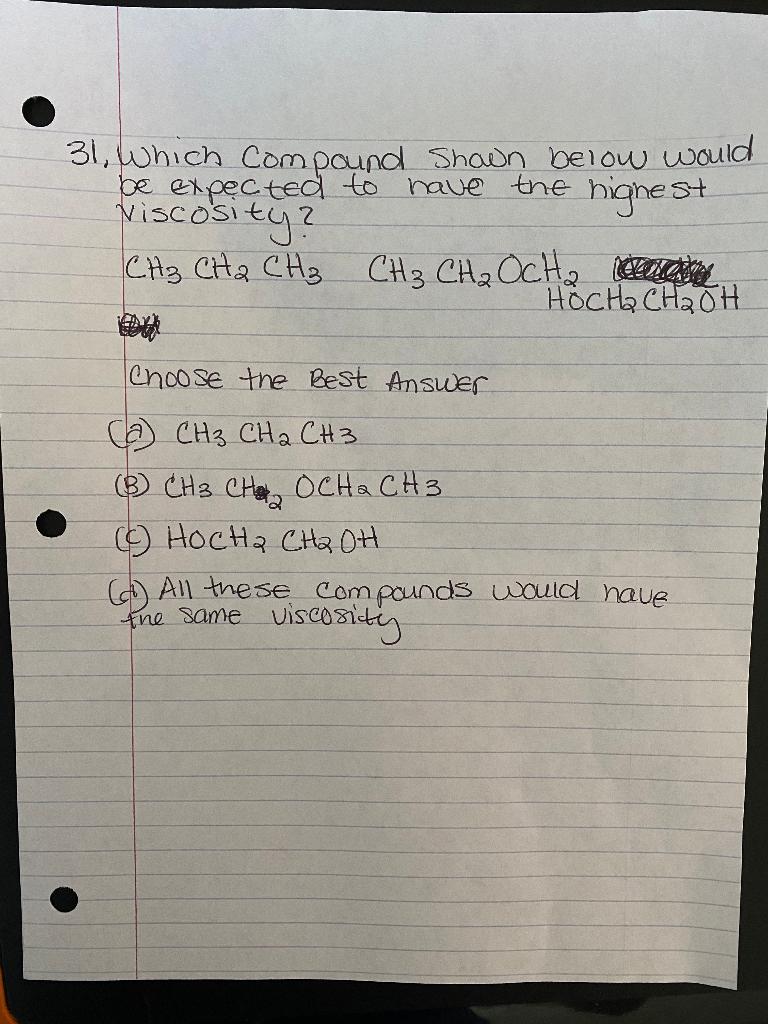 31. Which Compound Shown below would
be expected to have the highest
viscosity?
CH3 CH2 CH3 CH3 CH2 OCH2
HOCH2 CH2OH
Choose the Best Answer
(a) CH3 CH2 CH3
(B) CH3 CH2 OCH2 CH3
(C) HOCH2 CH2OH
(d) All these compounds would have
the same viscosity